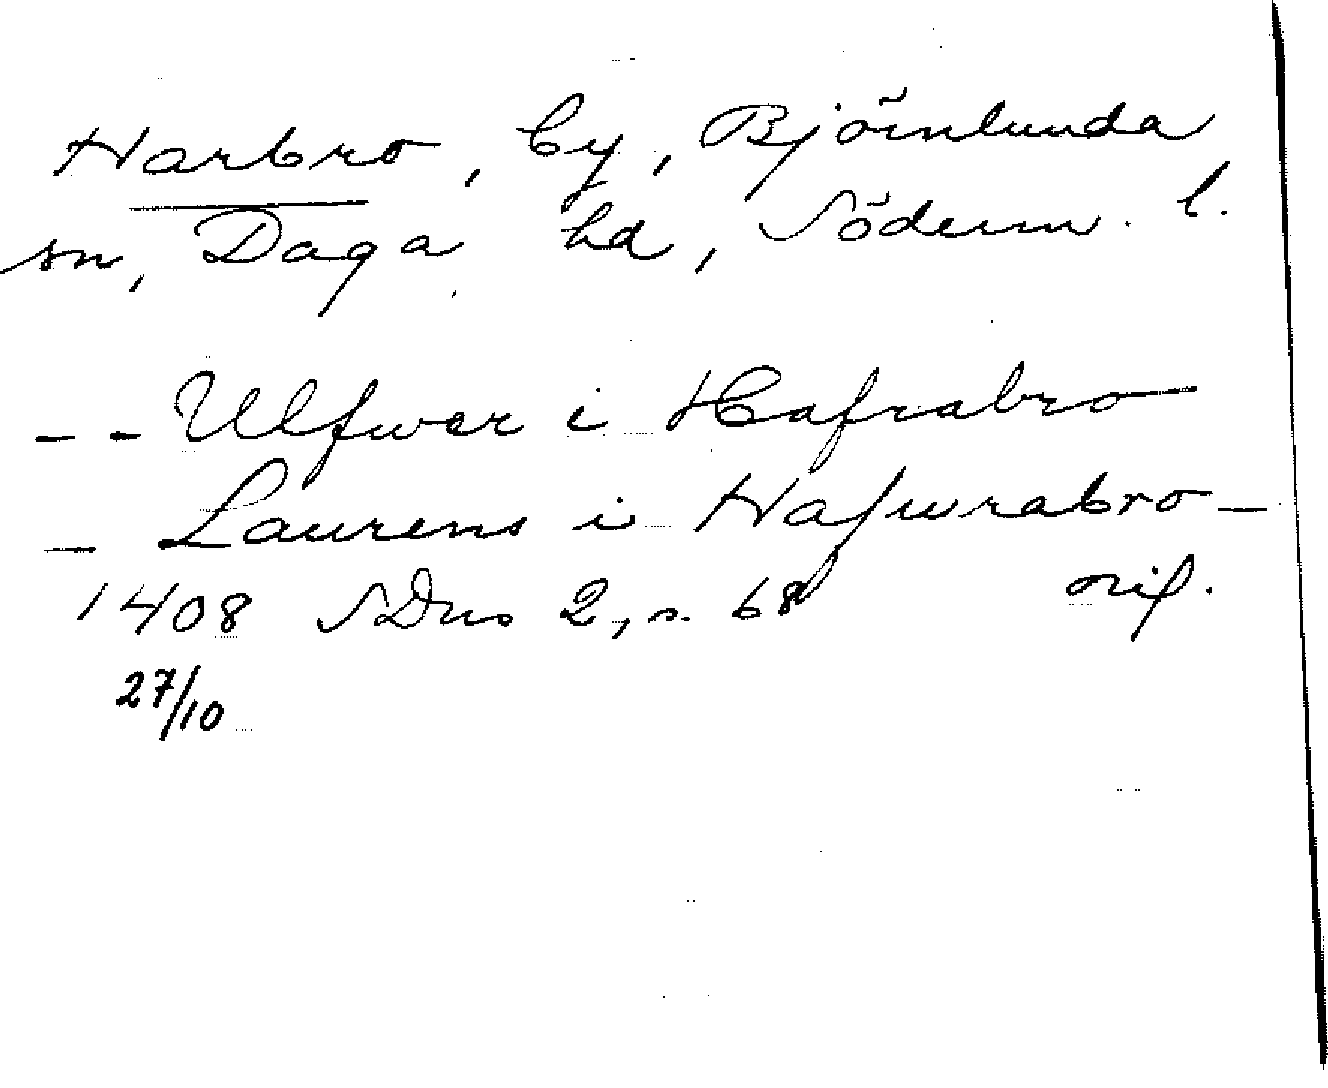 Harbro, by, Björnlunda
sn, Daga hd, Söderm. l.
-- Ulfwer i Hafrabro
- Laurens i Hafwrabro -
1408 SDns 2, s. 68
27/10